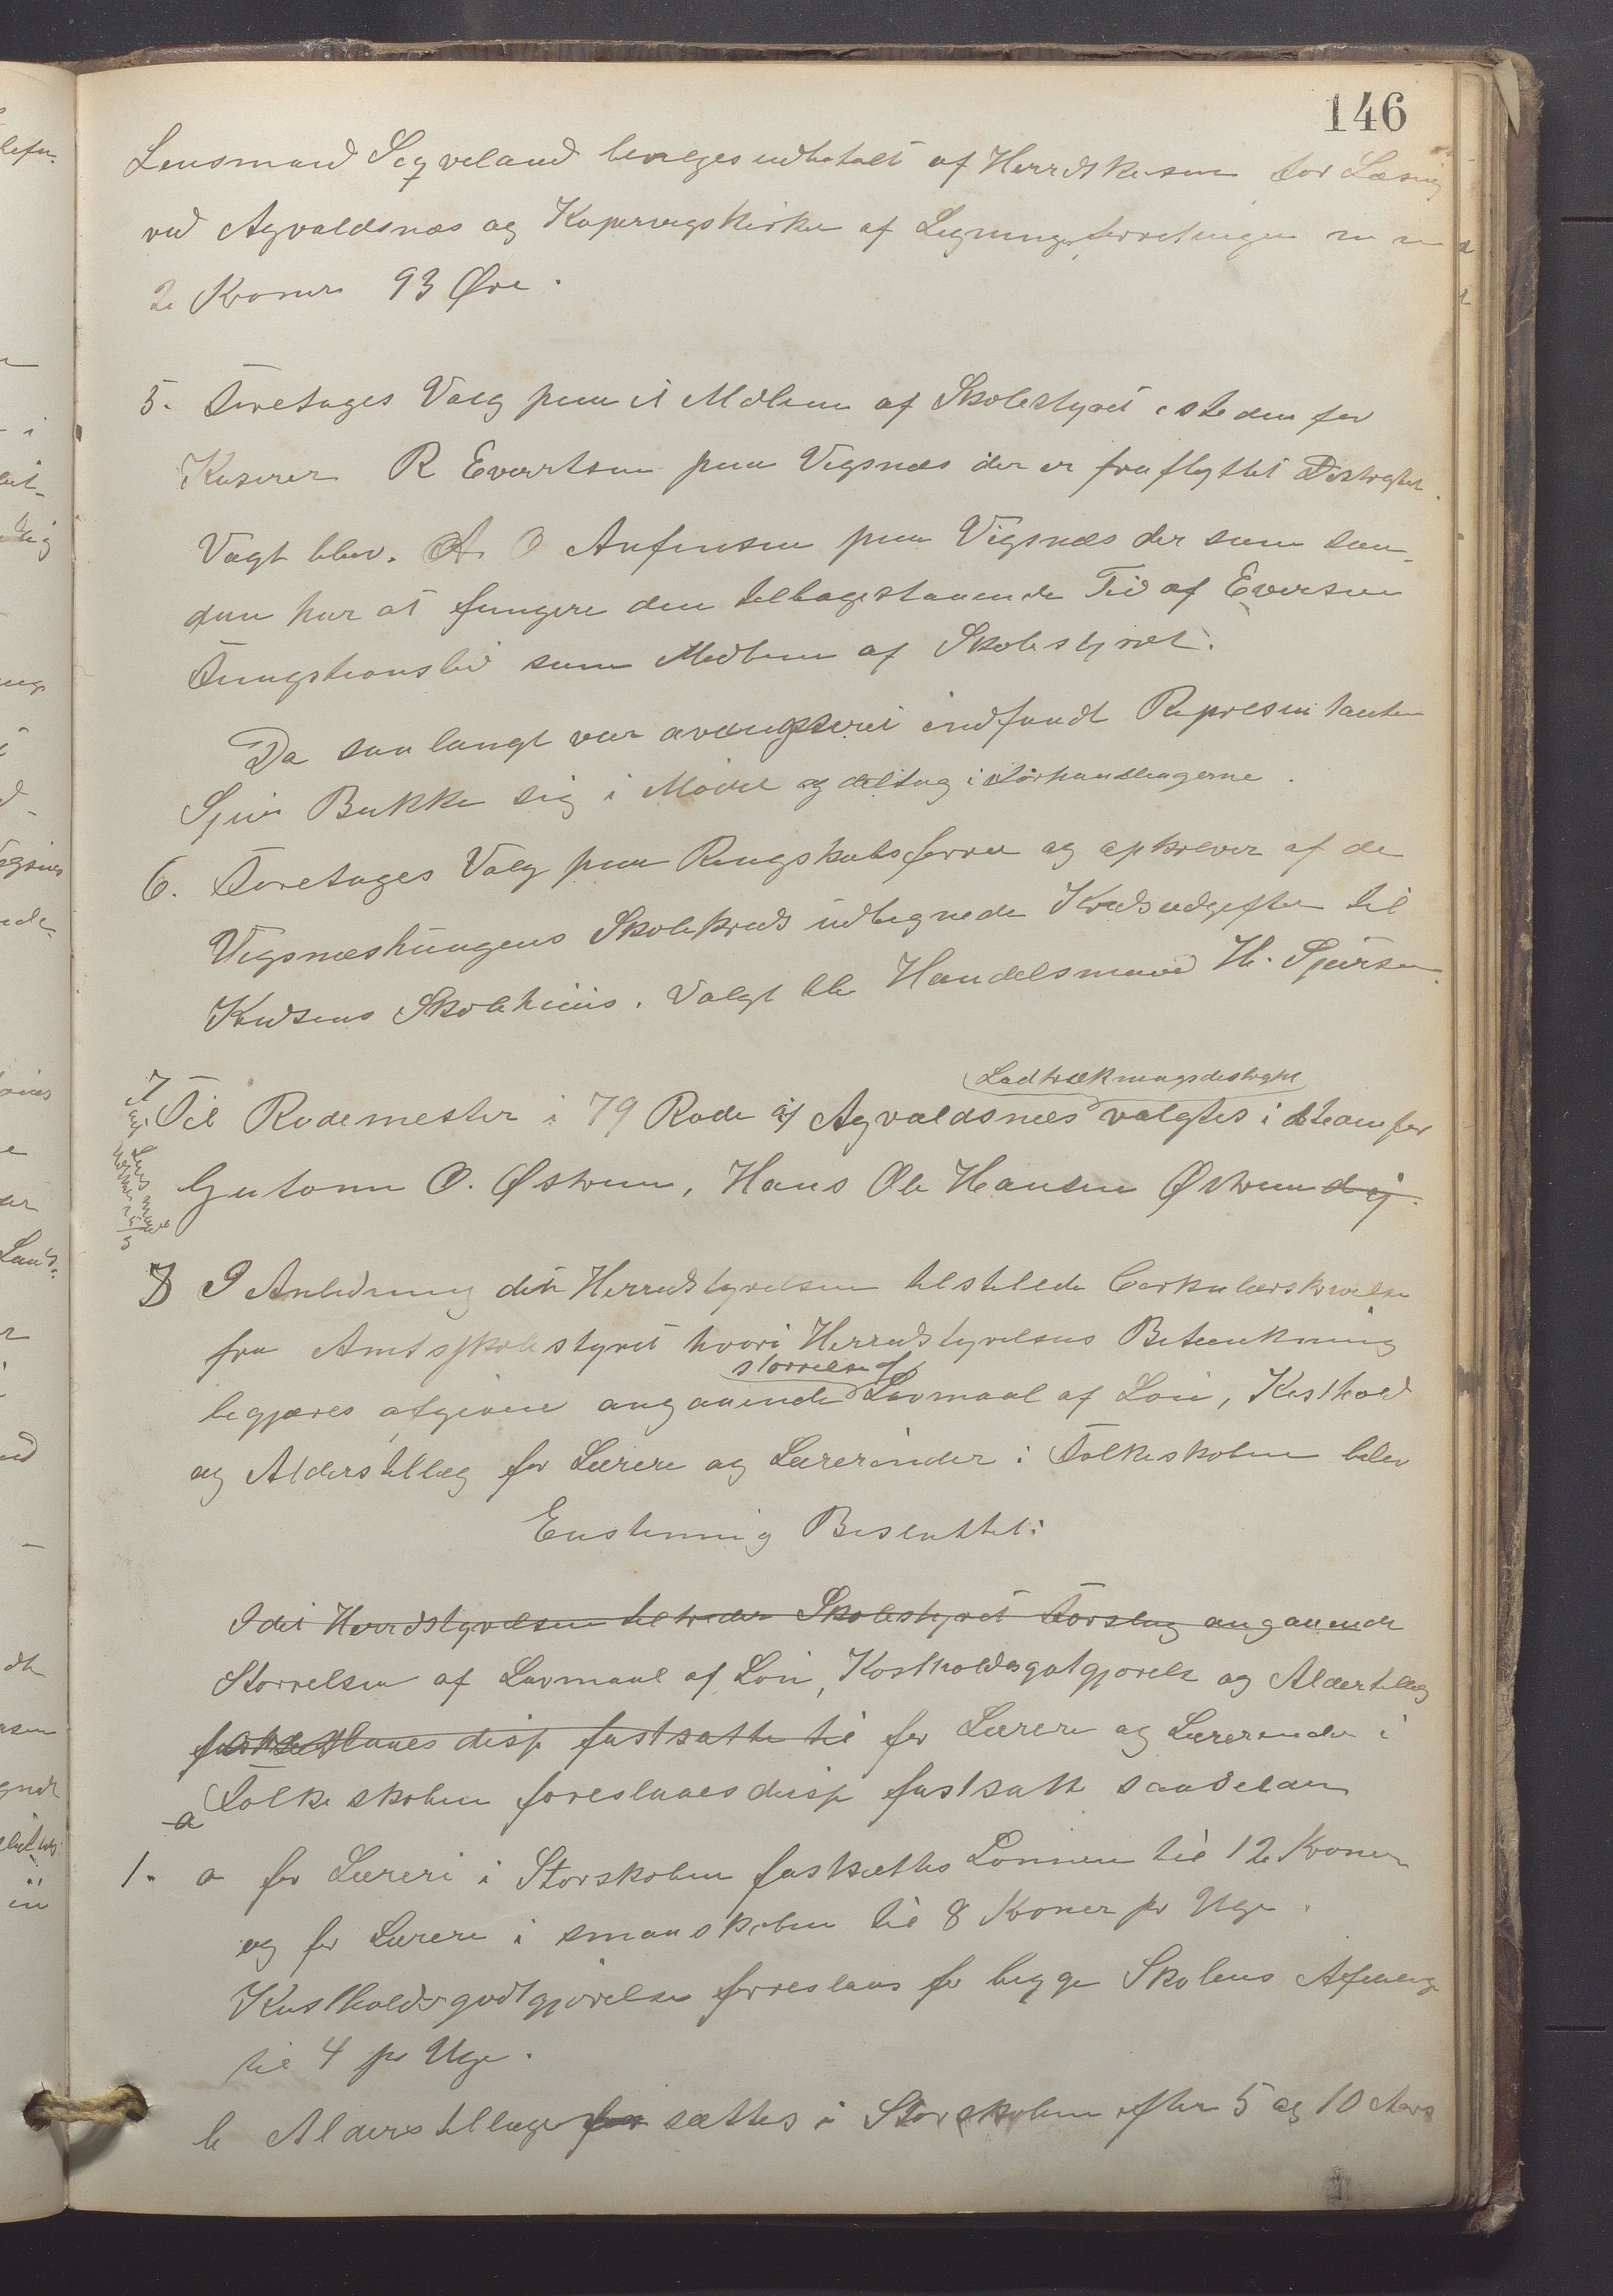 146
Lensmand Seqveland beviges udbetalt af Herredskassen for Læsning
ved Agvaldsnæs og Kopervigs Kirke af Ligningsforretningen m m
2 Kroner 93 Øre.
5. Foretages Valg paa et Medlem af Skolestyret isteden for
Kaserer R Evertsen paa Vigsnæs der er fraflyttet Distrigtet.
Vagt blev. A. O Anfinsen paa Vigsnæs der som saa-
dan har at fungere den tilbagestaaende Tid af Eversen
Fungstionstid som Medlem af Skolestyret.
Da saa langt var avangseret indfandt Representanten
Sjur Bukke sig i Mødet og deltog i Forhandlingerne.
6. Foretages Valg paa Rengskabsførrer og opkrever af de
Vigsnæshaugens Skolekreds udlignede Kredsudgifter til
Kredsens Skolehuus. Valgt ble Handelsmand H. Sjursen.
Ladtrækningsdistrigt
7 Til Rodemester i 79 Rode af Agvaldsnæs valgtes i steden for
Gutorm O. Østrem, Hans Ole Hansen Østrem d ej.
8 I Anledning det Herredstyrelsen tilstilede Cerkulærskrivelse
fra Amtsskolestyret hvori Herredstyrelsens Betænkning
størrelse af
begjæres afgiven angaaende Lavmaal af Løn, Kosthold
og Alderstillæg for Lærere og Lærerinder i Folkeskolen blev
Enstemmig Besluttet:
I det Herredstyrelsen tiltræder Skolestyret Forslag angaaende
Størrelsen af Lavmaal af Løn, Kostholdsgotgjørelse og Aldertillæg
foreslaaes disse fastsatte til for Lærere og Lærerinder i
Folkeskolen foreslaaes disse fastsatt saadelæn
a
1. a for Lærere i Storskolen fastsættes Lønnen til 12 Kroner
og for Lærere i smaaskolen til 8 Kroner pr Uge.
Kostholdsgodtgjørelse forreslaas for begge Skolens Afdeling
til 4 pr Uge.
b Alderstillæge for sættes i Storskolen efter 5 og 10 Aars